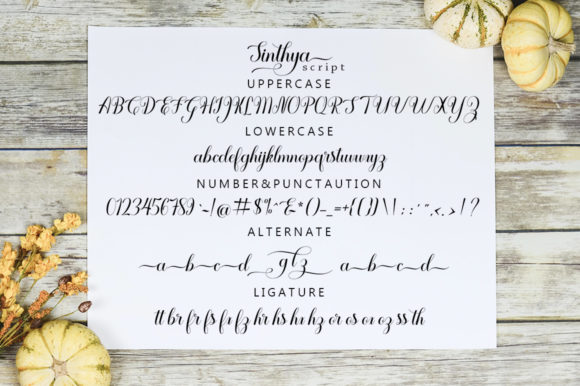 Sinthya
script
UPPERCASE
ABCDEFGHIJKLMNOPQRSTUVWXYZ
LOWERCASE
abcdefghijklmnopqrstuvwxyz
NUMBER&PUNCTAUTION
0123456789`~!@#$%^&*()-_=+{[}]\|:;'",<.>/?
ALTERNATE
a-b-c-d g t z a-b-c-d
LIGATURE
tt br fr fs fi fz hr hs hi hz or os oi oz ss th